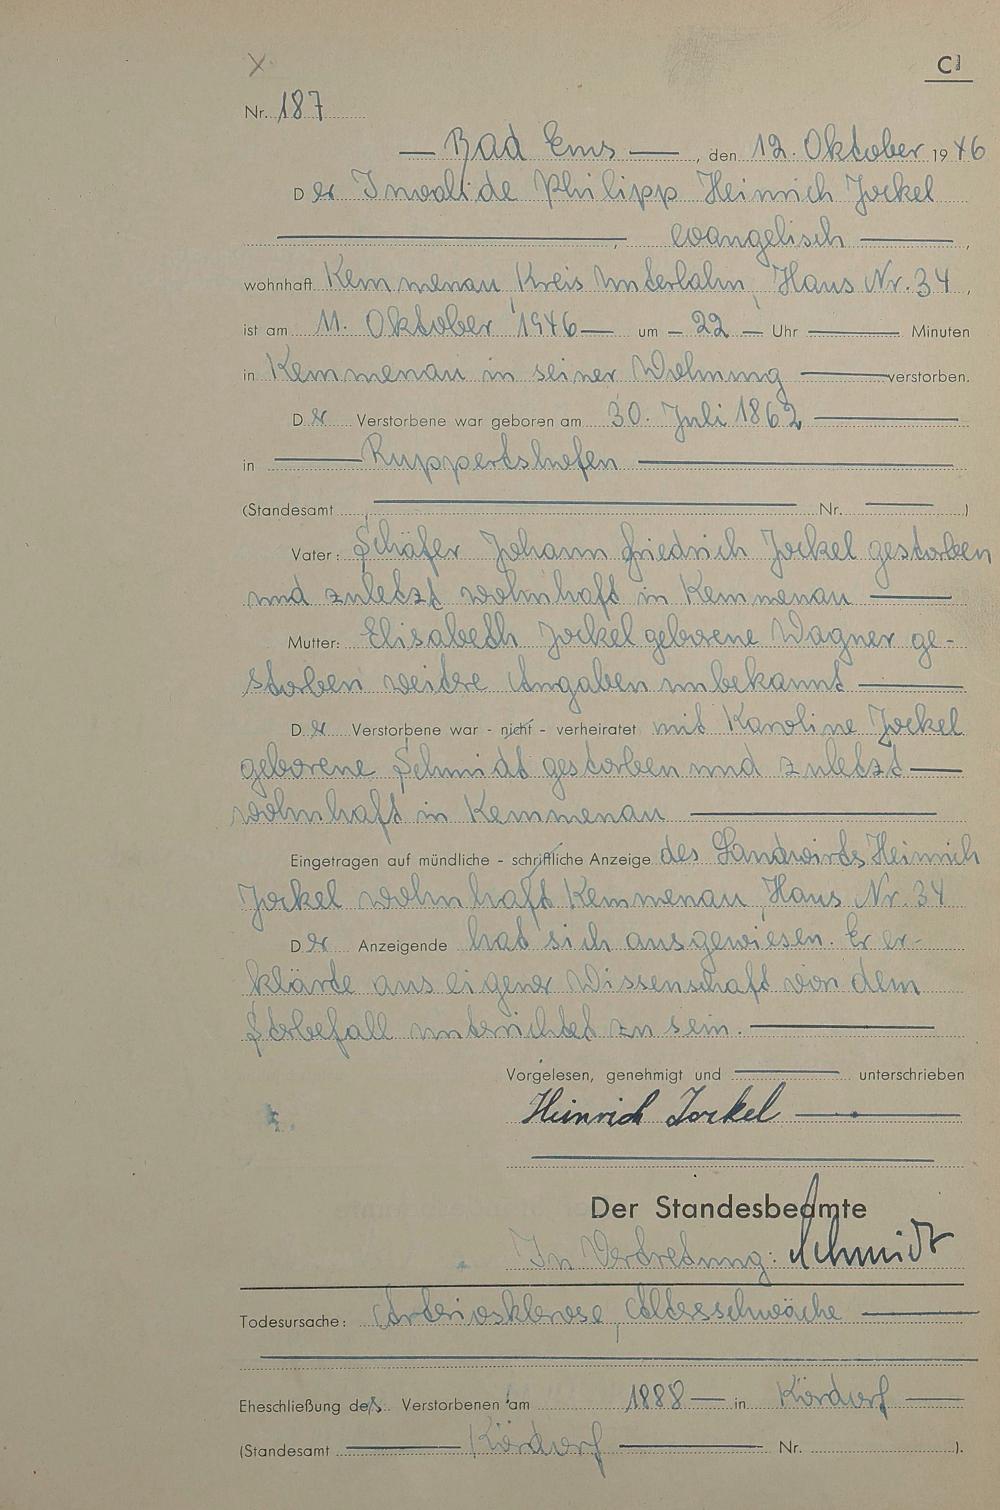 C1
Nr. 187
— Bad Ems —, den 12. Oktober 1946
Der Invalide Philipp Heinrich Jockel
—, evangelisch —,
wohnhaft Kemmenau, Kreis Unterlahn, Haus Nr. 34,
ist am 11. Oktober 1946 — um — 22 — Uhr — Minuten
in Kemmenau in seiner Wohnung — verstorben.
Der Verstorbene war geboren am 30. Juli 1862 —
in — Ruppertshofen —
(Standesamt — Nr. — )
Vater: Schäfer Johann Friedrich Jockel gestorben
und zuletzt wohnhaft in Kemmenau —
Mutter: Elisabeth Jockel geborene Wagner ge-
storben weitere Angaben unbekannt —
Der Verstorbene war - nicht - verheiratet mit Karoline Jockel
geborene Schmidt gestorben und zuletzt —
wohnhaft in Kemmenau —
Eingetragen auf mündliche - schriftliche Anzeige des Landwirts Heinrich
Jockel wohnhaft Kemmenau, Haus Nr. 34
Der Anzeigende hat sich ausgewiesen. Er er-
klärte aus eigener Wissenschaft von dem
Sterbefall unterichtet zu sein. —
Vorgelesen, genehmigt und — unterschrieben
Heinrich Jockel —
Der Standesbeamte
In Vertretung: Schmidt
Todesursache: Arteriosklerose, Altersschwäche —
Eheschließung des Verstorbenen am 1888 — in Kördorf —
(Standesamt — Kördorf — Nr. ).